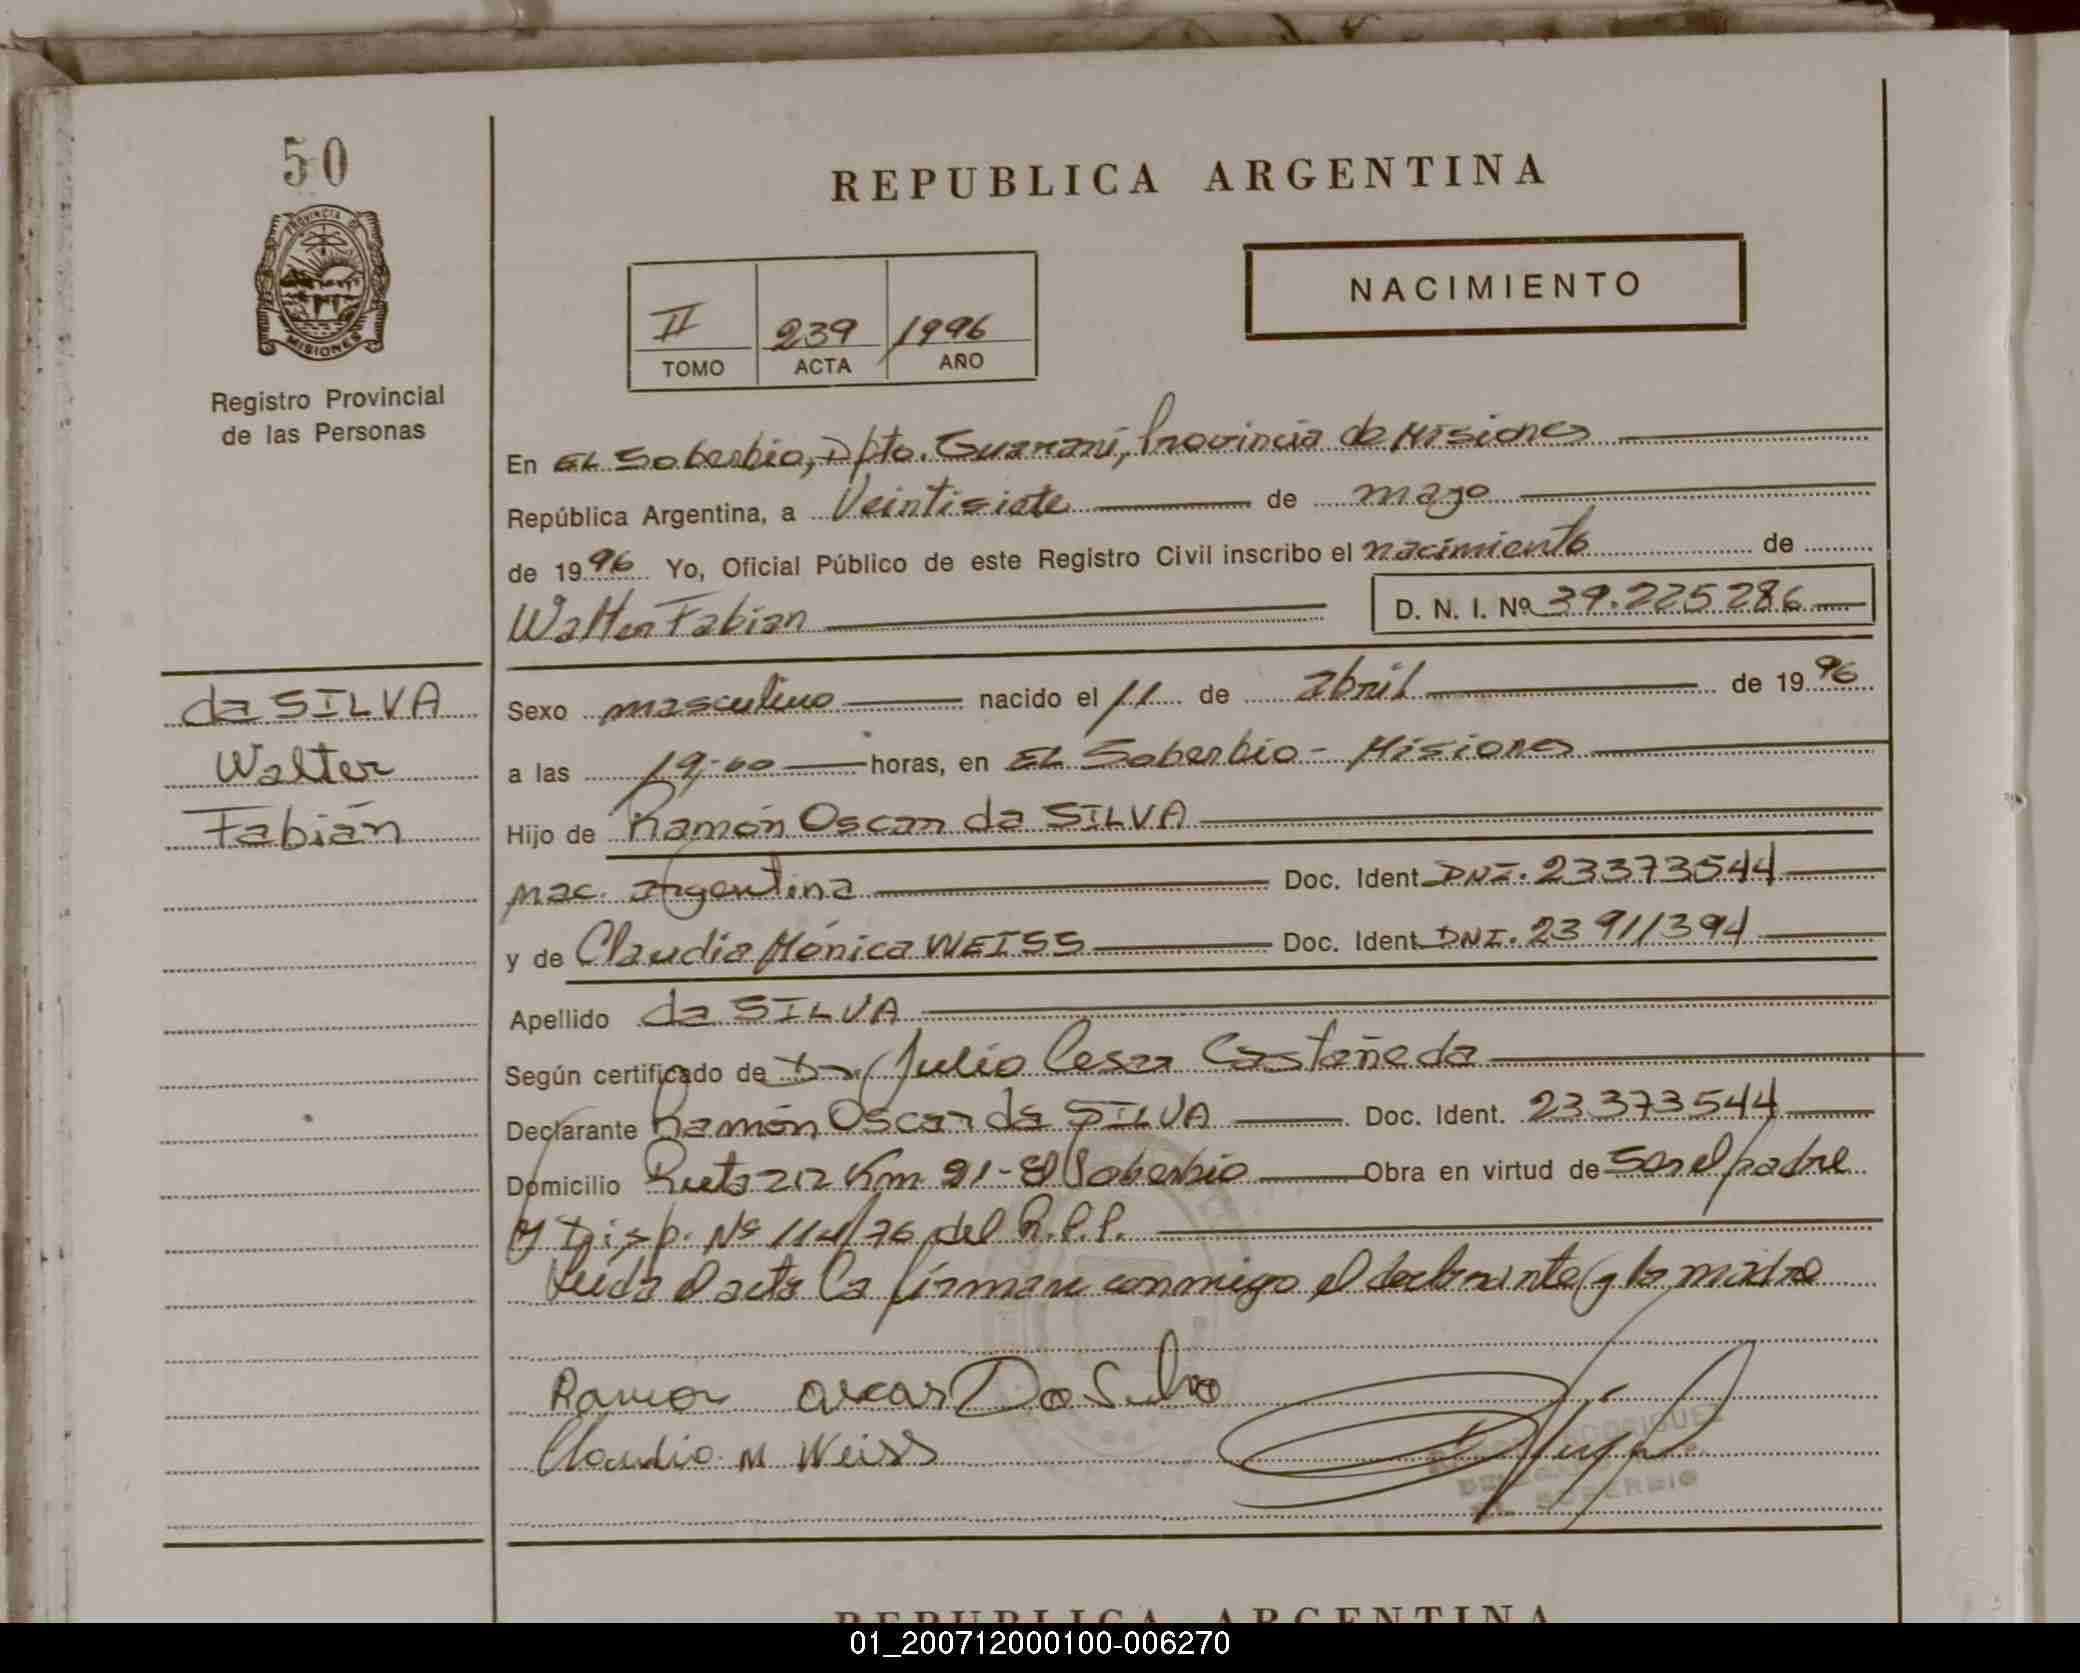 50
PROVINCIA DE
MISIONES
Registro Provincial
de las Personas
REPUBLICA ARGENTINA
NACIMIENTO
II 239 1996
TOMO ACTA AÑO
En EL Soberbio, Dpto. Guaraní, Provincia de Misiones
República Argentina, a Veintisiete de mayo
de 1996 Yo, Oficial Público de este Registro Civil inscribo el nacimiento de
Walter Fabian D. N. I. Nº 39.225286
da SILVA
Walter
Fabián
Sexo masculino nacido el 11 de abril de 1996
a las 19,00 horas, en EL Soberbio - Misiones
Hijo de Ramón Oscar da SILVA
nac. argentina Doc. Ident DNI. 23373544
y de Claudia Mónica WEISS Doc. Ident DNI. 23911394
Apellido da SILVA
Según certificado de Dr. Julio Cesar Castañeda
Declarante Ramón Oscar da SILVA Doc. Ident. 23373544
Domicilio Ruta 212 Km 91 - El Soberbio Obra en virtud de Ser el padre
y Disp. Nº 114/76 del R.P.P.
Leída el acta la firman conmigo el declarante y la madre
Ramon oscar Da Silva
Claudia M Weiss
RODRIGUEZ
EL SOBERBIO
REPUBLICA ARGENTINA
01_200712000100-006270